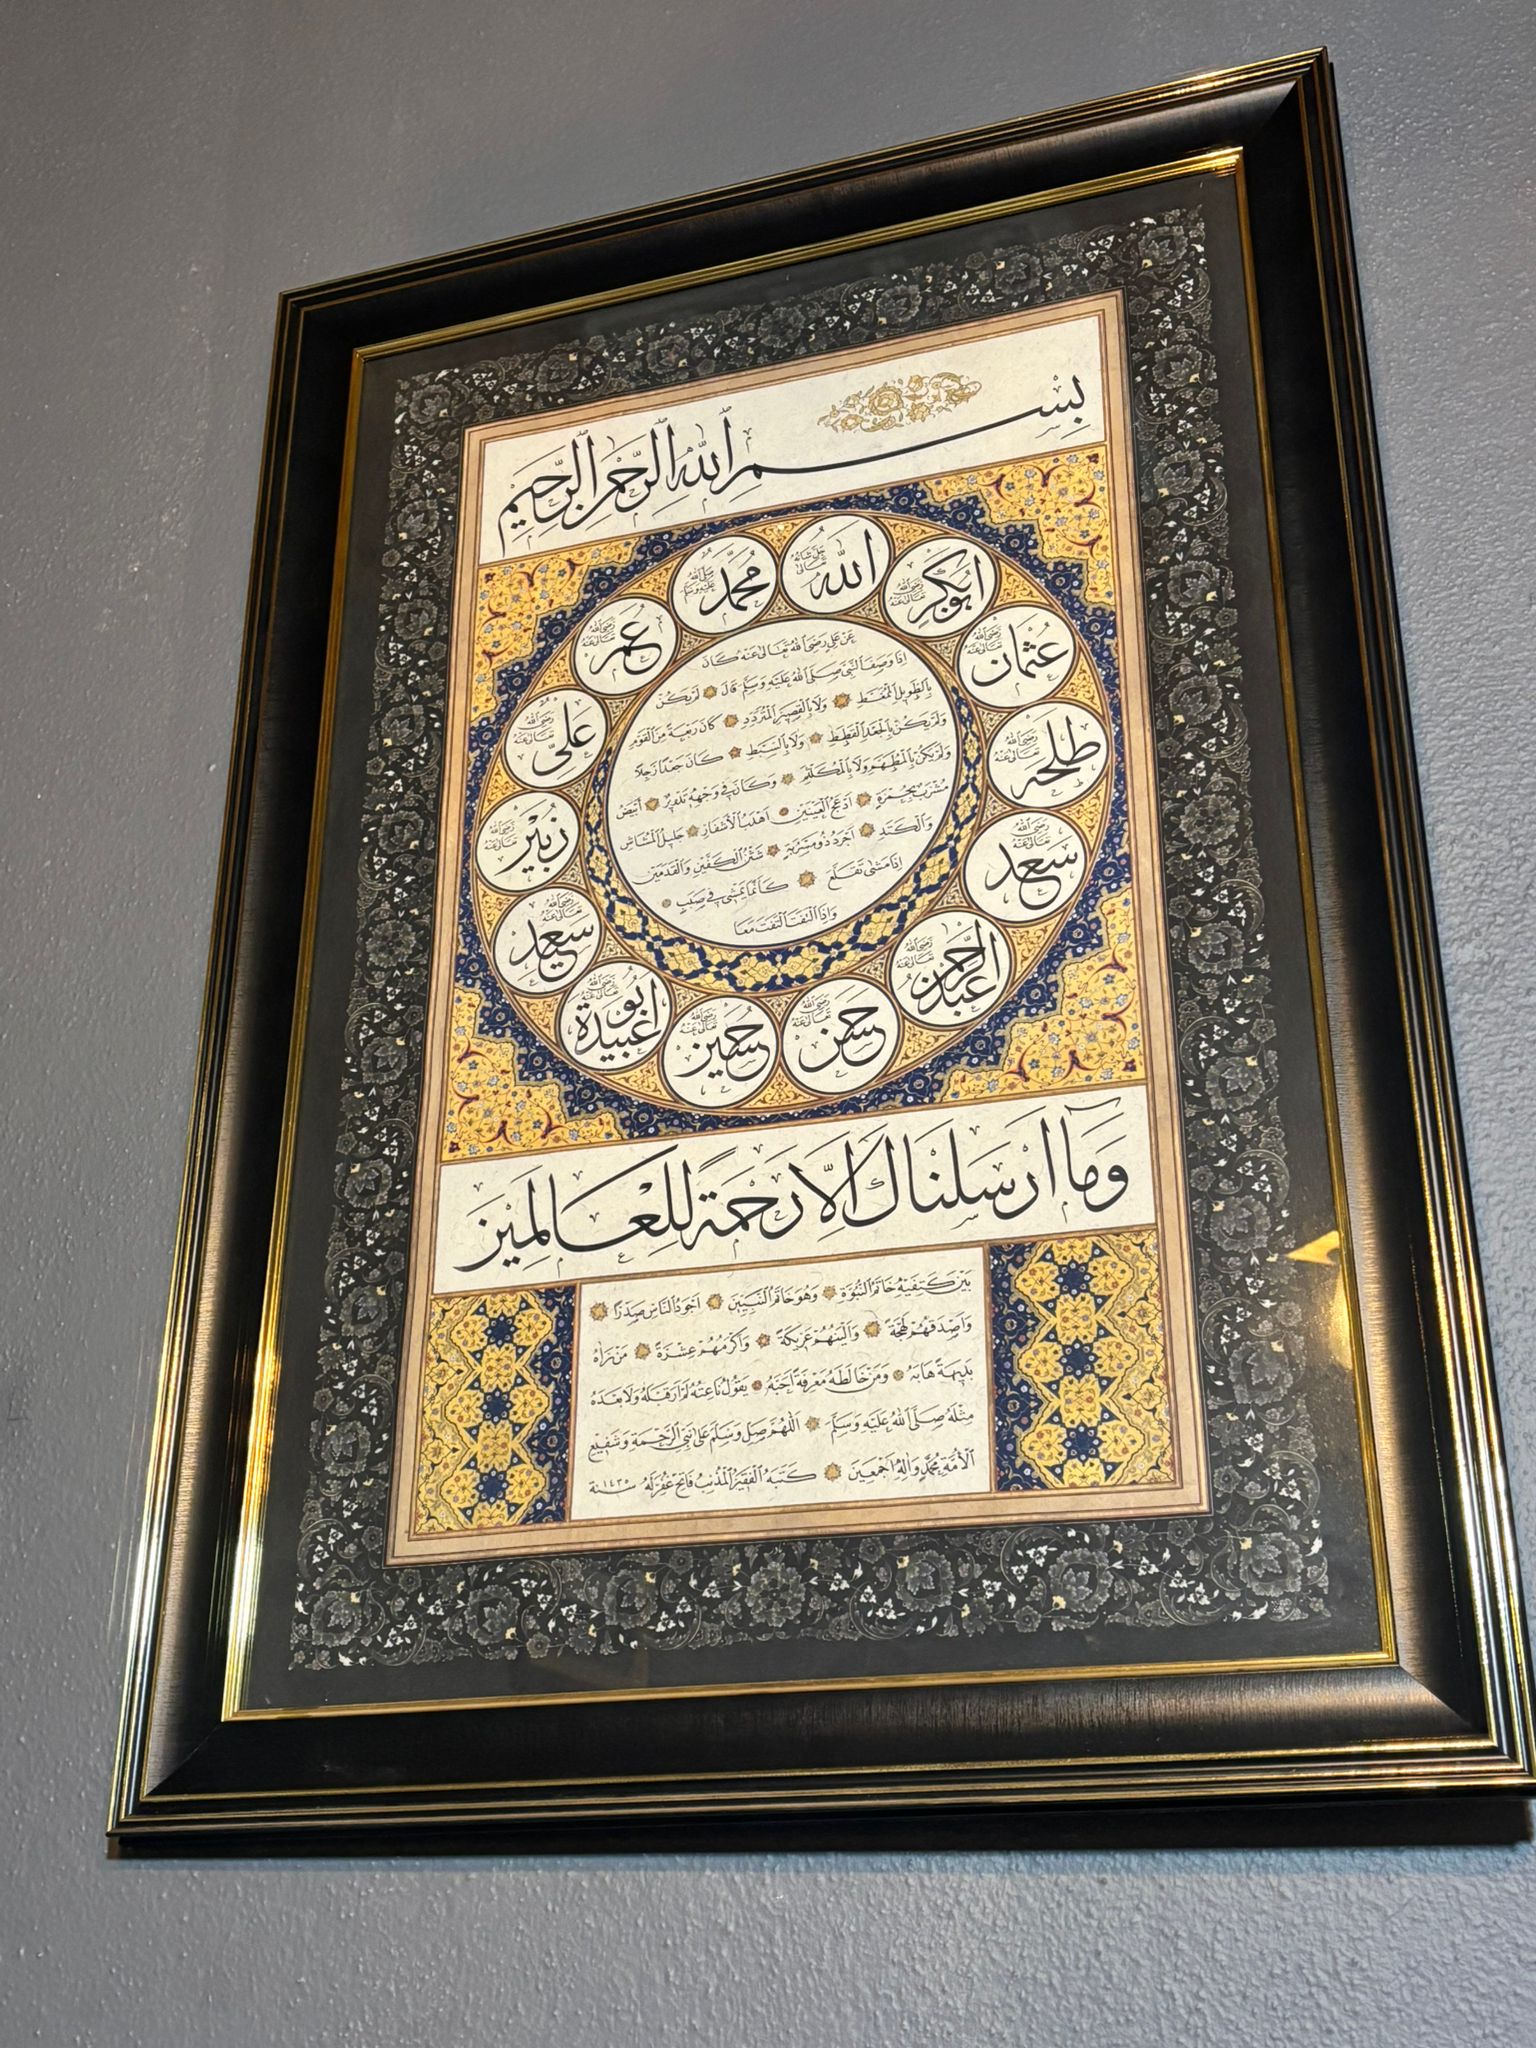 بِسْمِ اللّٰهِ الرَّحْمٰنِ الرَّحِيمِ
اللّٰه جَلَّ شَانُهُ تَعَالٰى
مُحَمَّد صَلَّى اللّٰهُ عَلَيْهِ وَسَلَّمَ
ابوبكر رَضِيَ اللّٰهُ تَعَالٰى عَنْهُ
عُمَر رَضِيَ اللّٰهُ تَعَالٰى عَنْهُ
عُثْمَان رَضِيَ اللّٰهُ تَعَالٰى عَنْهُ
عَلِيّ رَضِيَ اللّٰهُ تَعَالٰى عَنْهُ
طلحه رَضِيَ اللّٰهُ تَعَالٰى عَنْهُ
زُبَيْر رَضِيَ اللّٰهُ تَعَالٰى عَنْهُ
سعد رَضِيَ اللّٰهُ تَعَالٰى عَنْهُ
سعيد رَضِيَ اللّٰهُ تَعَالٰى عَنْهُ
عبد الرحمن رَضِيَ اللّٰهُ تَعَالٰى عَنْهُ
ابو عبيدة رَضِيَ اللّٰهُ تَعَالٰى عَنْهُ
حسن رَضِيَ اللّٰهُ تَعَالٰى عَنْهُ
حُسَيْن رَضِيَ اللّٰهُ تَعَالٰى عَنْهُ
عَنْ عَلِيٍّ رَضِيَ اللّٰهُ تَعَالٰى عَنْهُ كَانَ
اِذَا وَصَفَ النَّبِيَّ صَلَّى اللّٰهُ عَلَيْهِ وَسَلَّمَ قَالَ لَمْ يَكُنْ
بِالطَّوِيلِ الْمُمَّغِطِ وَلَا بِالْقَصِيرِ الْمُتَرَدِّدِ كَانَ رَبْعَةً مِنَ الْقَوْمِ
وَلَمْ يَكُنْ بِالْجَعْدِ الْقَطِطِ وَلَا بِالسَّبِطِ كَانَ جَعْدًا رَجِلًا
وَلَمْ يَكُنْ بِالْمُطَهَّمِ وَلَا بِالْمُكَلْثَمِ وَكَانَ فِي وَجْهِهِ تَدْوِيرٌ اَبْيَضُ
مُشْرَبٌ بِحُمْرَةٍ اَدْعَجُ الْعَيْنَيْنِ اَهْدَبُ الْاَشْفَارِ جَلِيلُ الْمُشَاشِ
وَالْكَتَدِ اَجْرَدُ ذُو مَسْرُبَةٍ شَثْنُ الْكَفَّيْنِ وَالْقَدَمَيْنِ
اِذَا مَشٰى تَقَلَّعَ كَاَنَّمَا يَمْشِي فِي صَبَبٍ
وَاِذَا الْتَفَتَ الْتَفَتَ مَعًا
وَمَا اَرْسَلْنَاكَ اِلَّا رَحْمَةً لِلْعَالَمِينَ
بَيْنَ كَتِفَيْهِ خَاتَمُ النُّبُوَّةِ وَهُوَ خَاتَمُ النَّبِيِّينَ اَجْوَدُ النَّاسِ صَدْرًا
وَاَصْدَقُهُمْ لَهْجَةً وَاَلْيَنُهُمْ عَرِيكَةً وَاَكْرَمُهُمْ عِشْرَةً مَنْ رَاٰهُ
بَدِيهَةً هَابَهُ وَمَنْ خَالَطَهُ مَعْرِفَةً اَحَبَّهُ يَقُولُ نَاعِتُهُ لَمْ اَرَ قَبْلَهُ وَلَا بَعْدَهُ
مِثْلَهُ صَلَّى اللّٰهُ عَلَيْهِ وَسَلَّمَ اَللّٰهُمَّ صَلِّ وَسَلِّمْ عَلٰى نَبِيِّ الرَّحْمَةِ وَشَفِيعِ
الْاُمَّةِ مُحَمَّدٍ وَاٰلِهِ اَجْمَعِينَ كَتَبَهُ الْفَقِيرُ الْمُذْنِبُ فَاتِح غُفِرَ لَهُ سنة ١٤٣٥